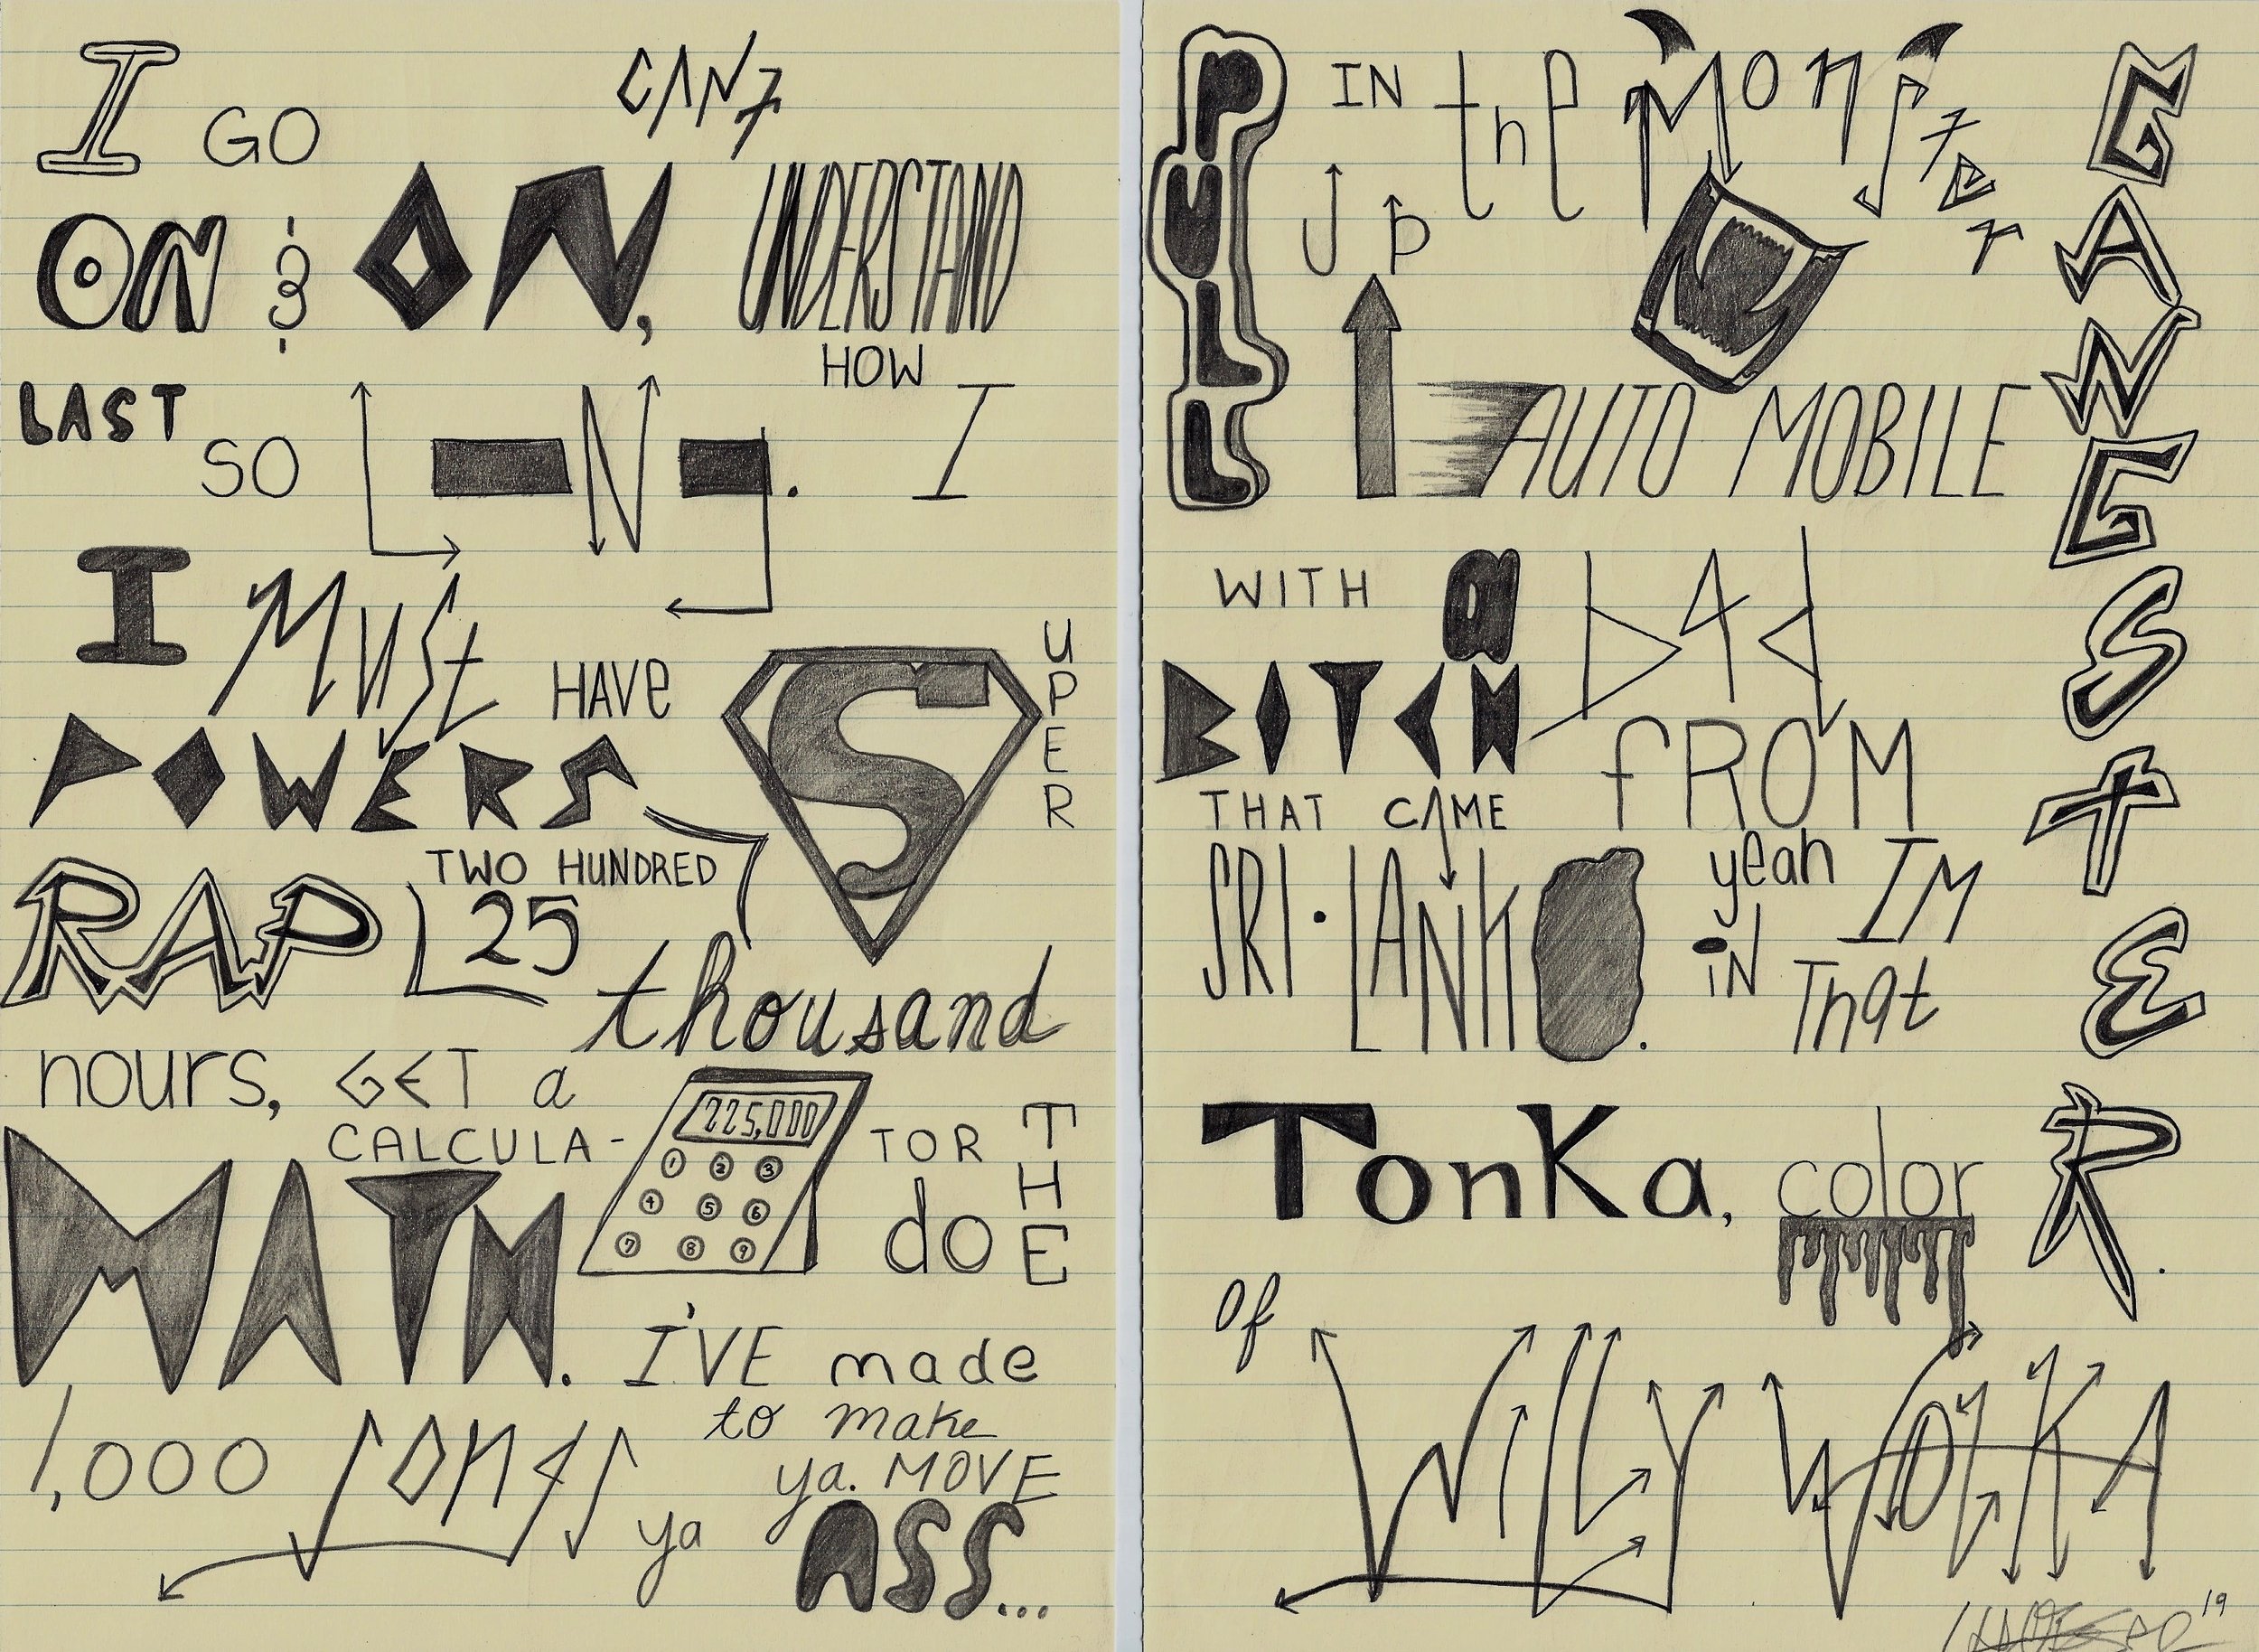 I GO
ON & ON, CAN7
UNDERSTAND
HOW
LAST SO LONG. I
I MUST HAVE SUPER
POWERS
RAP TWO HUNDRED
25 thousand
hours, GET a
CALCULA- 225,000 TOR
1 2 3
4 5 6
7 8 9
do THE
MATH. I'VE made
1,000 SONGS to make
ya ya. MOVE
ASS...
PULL UP IN the Monster
AUTO MOBILE GANGSTER.
WITH a bad
BITCH
THAT CAME fROM
SRI·LANKA. yeah IM
iN That
TonKa, color
of WILLY WONKA
19